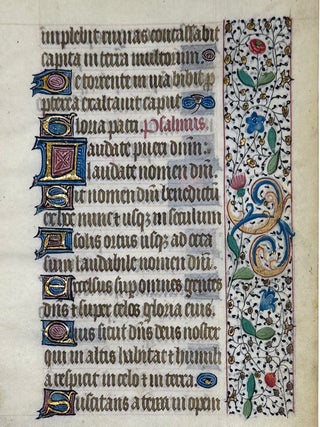 implebit ruinas
capita in terra multorum
De torrente in via bibit p̄
pterea exaltauit caput
Gloria patri. Psalmus.
Laudate pueri dn̄m:
laudate nomen dn̄i.
Sit nomen dn̄i benedictū
ex hoc nunc et usqꝫ in seculum
A solis ortus usqꝫ ad occa
sum laudabile nomen dn̄i.
Excelsus sup̄ omnes gentes
dn̄s et super celos gloria eius.
Quis sicut dn̄s deus noster
qui in altis habitat et humili
a respicit in celo et in terra.
Suscitans a terra inopem